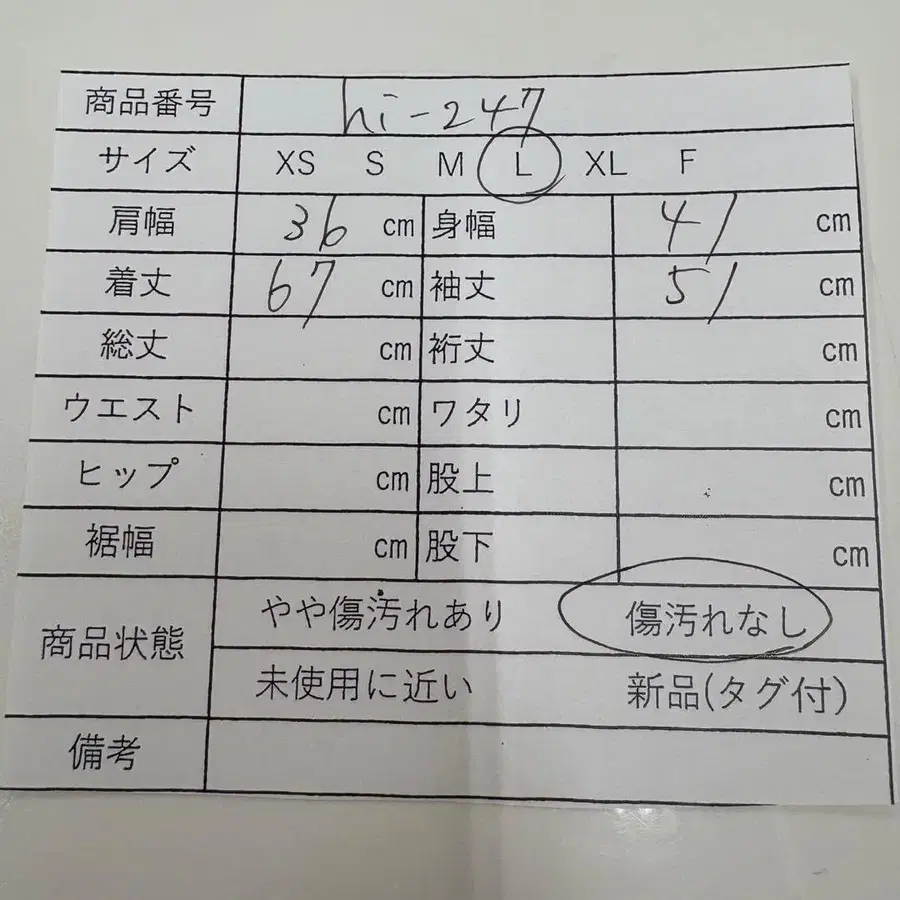 商品番号 hi-247
サイズ XS S M L XL F
肩幅 36 cm 身幅 41 cm
着丈 67 cm 袖丈 51 cm
総丈 cm 裄丈 cm
ウエスト cm ワタリ cm
ヒップ cm 股上 cm
裾幅 cm 股下 cm
商品状態 やや傷汚れあり 傷汚れなし
未使用に近い 新品(タグ付)
備考